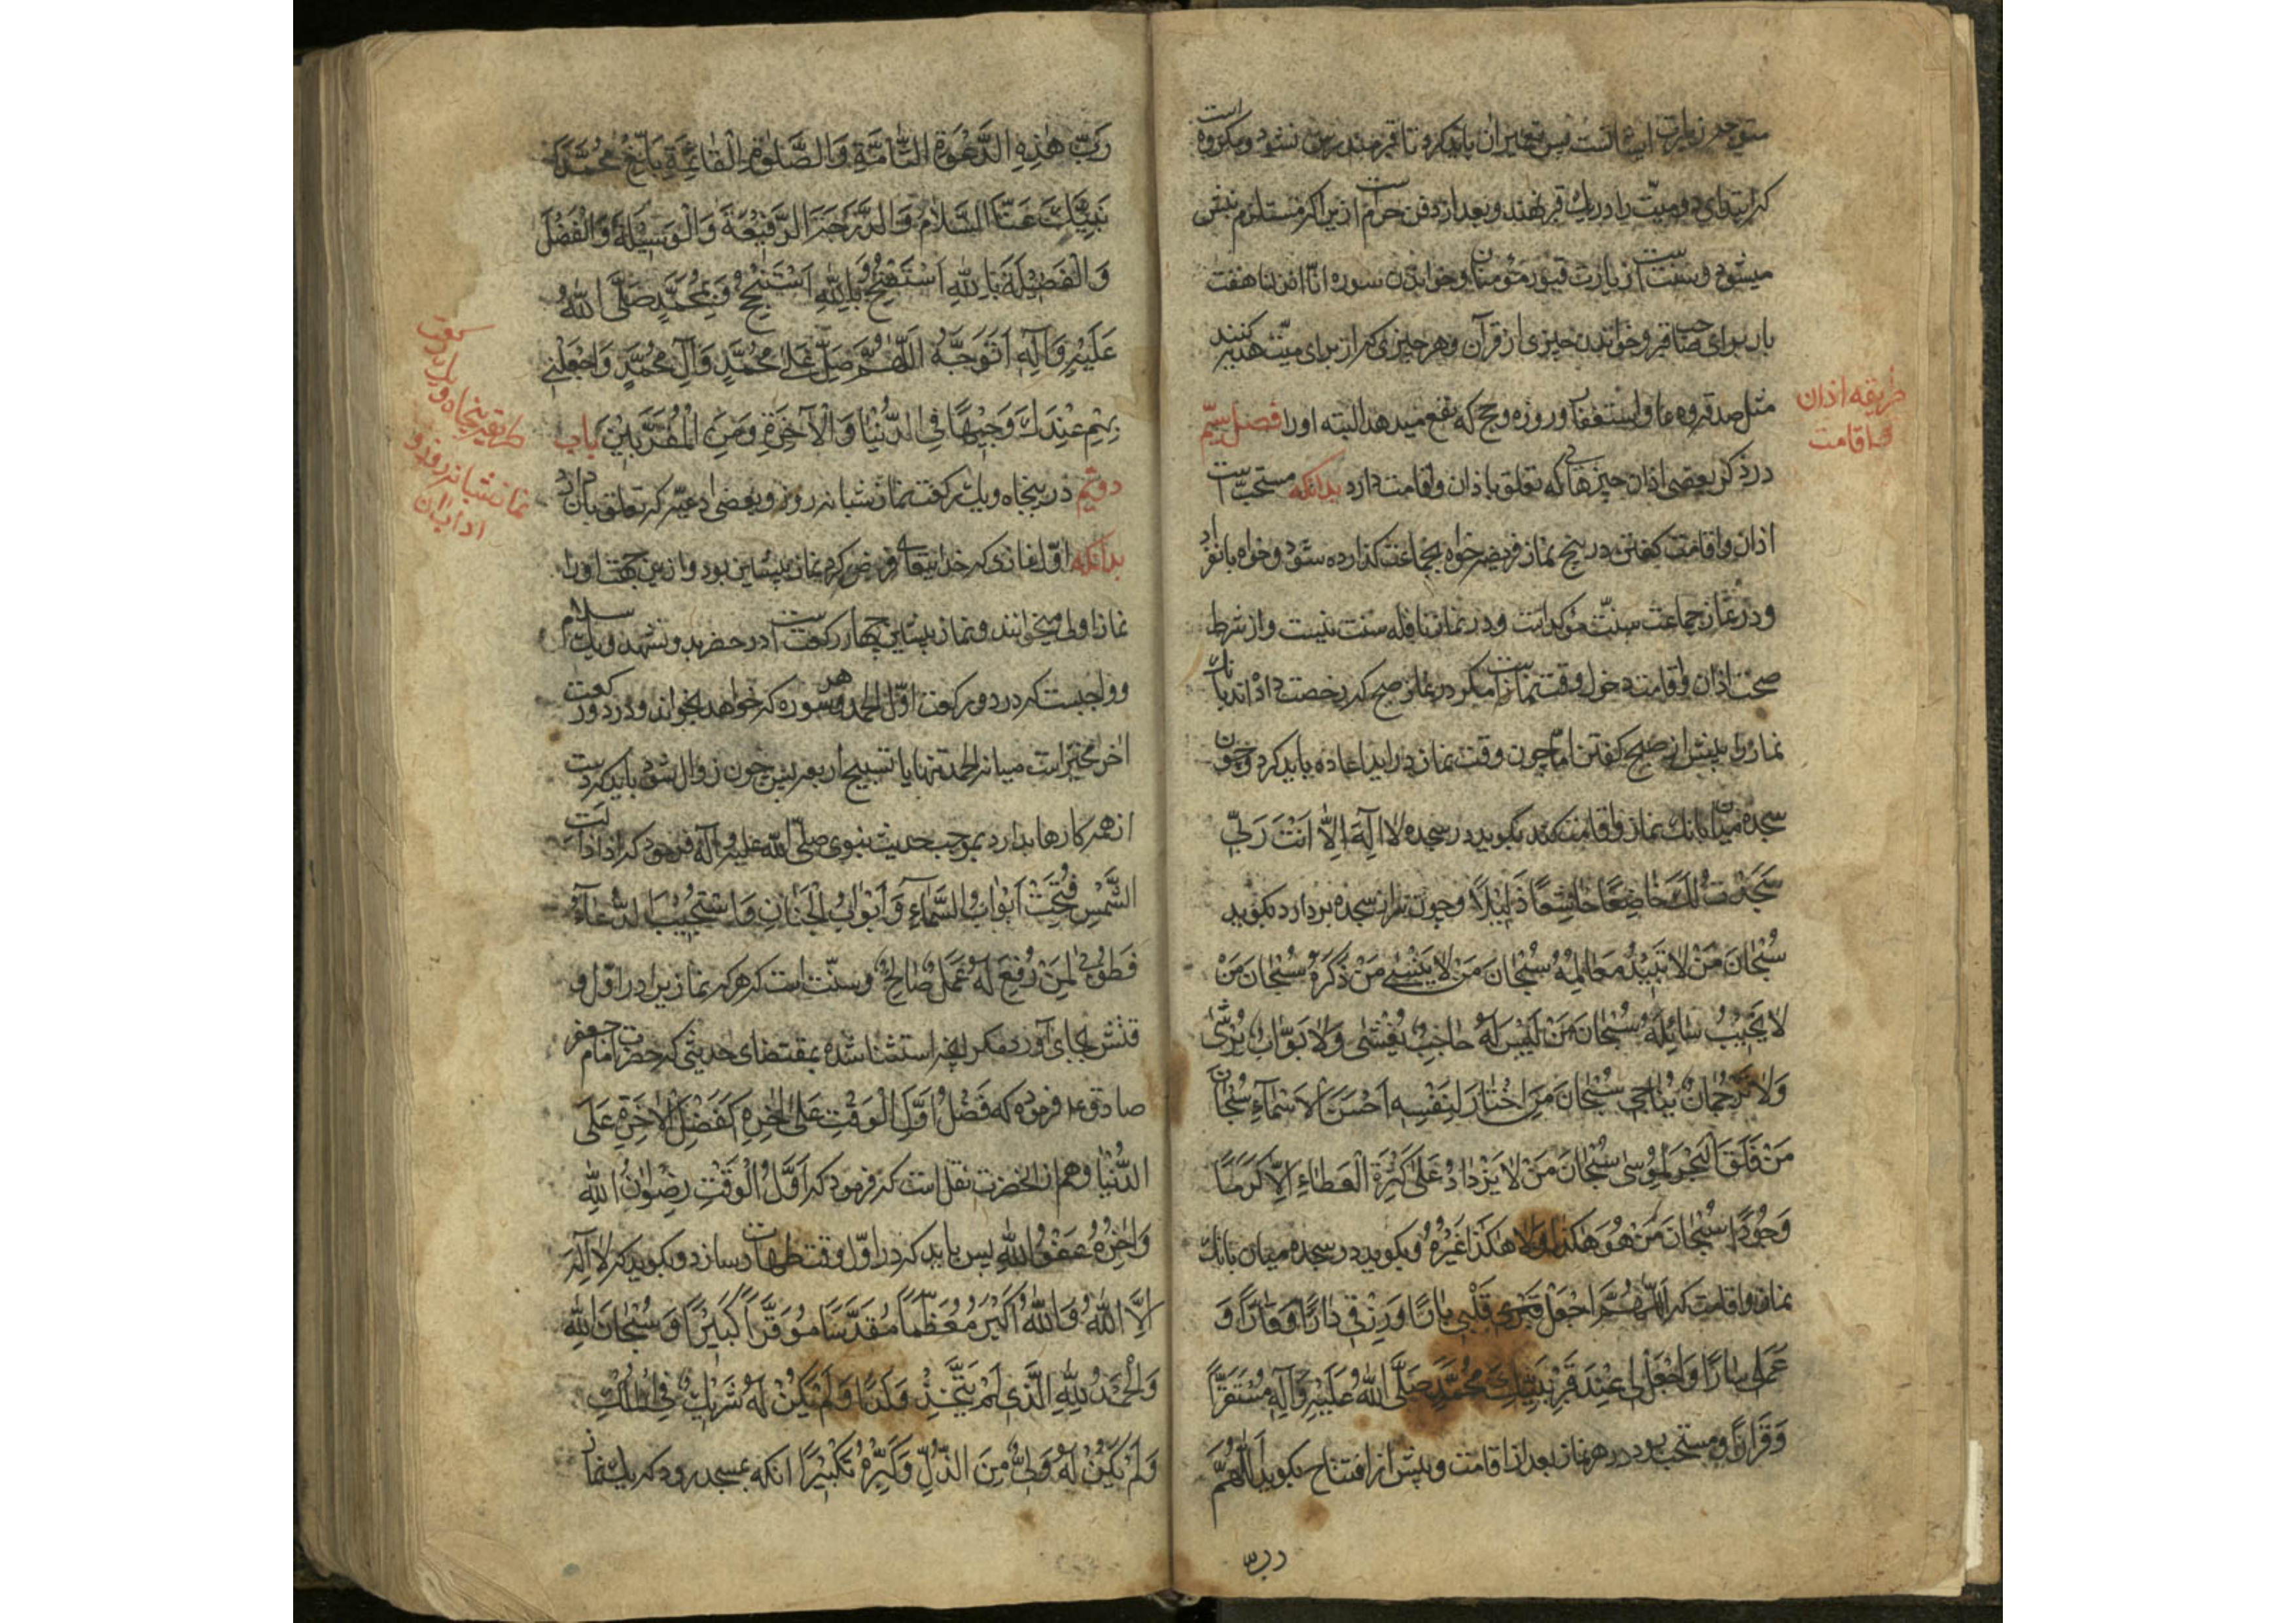 متوجه زیارت ایشانست پس تعمیر آن باید کرد تا قبر مندرس نشود و مکروه است
که ابتدای دو میت را در یک قبر نهند و بعد از دفن حرام است ازین اگر مستلزم نبش
میشود و سنت است زیارت قبور مؤمنان و خواندن سوره انا انزلنا هفت
بار برای صاحب قبر و خواندن چیزی از قرآن و هر چیزی که از برای میت هدیه کنند
مثل صدقه و دعا و استغفار و روزه و حج که نفع میدهد البته او را فصل سیم
در ذکر بعضی از آن چیزهائی که تعلق باذان و اقامت دارد بدانکه مستحب است
اذان و اقامت گفتن در پنج نماز فریضه خواه بجماعت گذارده شود و خواه بانفراد
و در نماز جماعت سنت مؤکد است و در نماز نافله سنت نیست و از شرط
صحت اذان و اقامت دخول وقت نماز است مگر در نماز صبح که رخصت داده‌اند بانک
نماز را پیش از صبح گفتن اما چون وقت نماز درآید اعاده باید کرد و چون
سجده میان بانک نماز و اقامت کند بگوید در سجده لا اِلٰهَ اِلاّٰ اَنْتَ رَبّی
سَجَدْتُ لَکَ خٰاضِعًا خٰاشِعًا ذَلیٖلًا و چون سر از سجده بردارد بگوید
سُبْحٰانَ مَنْ لاٰ تَبیٖدُ مَعٰالِمُهُ سُبْحٰانَ مَنْ لاٰ یَنْسٰی مَنْ ذَکَرَهُ سُبْحٰانَ مَنْ
لاٰ یَخیٖبُ سٰائِلُهُ سُبْحٰانَ مَنْ لَیْسَ لَهُ حٰاجِبٌ یُغْشٰی وَلاٰ بَوّٰابٌ یُرْشٰی
وَلاٰ تَرْجُمٰانٌ یُنٰاجٰی سُبْحٰانَ مَنِ اخْتٰارَ لِنَفْسِهِ اَحْسَنَ الْاَسْمٰآءِ سُبْحٰانَ
مَنْ فَلَقَ الْبَحْرَ لِمُوسٰی سُبْحٰانَ مَنْ لاٰ یَزْدٰادُ عَلٰی کَثْرَةِ الْعَطٰاءِ اِلّا کَرَمًا
وَجُودًا سُبْحٰانَ مَنْ هُوَ هٰکَذٰا وَلاٰ هٰکَذٰا غَیْرُهُ و بگوید در سجده میان بانک
نماز و اقامت که اَللّٰهُمَّ اجْعَلْ قَلْبی بٰارًّا وَرِزْقی دٰارًّا وَ
عَمَلی سٰارًّا وَاجْعَلْ لی عِنْدَ قَبْرِ نَبِیِّکَ مُحَمَّدٍ صَلَّی اللّٰهُ عَلَیْهِ وَآلِهِ مُسْتَقَرًّا
وَقَرٰارًا و مستحب بود در هر نماز بعد از اقامت و پیش از افتتاح بگوید اَللّٰهُمَّ
طریقه اذان
و اقامت
رَبَّ هٰذِهِ الدَّعْوَةِ التّٰامَّةِ وَالصَّلٰوةِ الْقٰائِمَةِ بَلِّغْ مُحَمَّدًا
نَبِیَّکَ عَنَّا السَّلاٰمَ وَالدَّرَجَةَ الرَّفیٖعَةَ وَالْوَسیٖلَةَ وَالْفَضْلَ
وَالْفَضیٖلَةَ بِاللّٰهِ اَسْتَفْتِحُ وَبِاللّٰهِ اَسْتَنْجِحُ وَبِمُحَمَّدٍ صَلَّی اللّٰهُ
عَلَیْهِ وَآلِهِ اَتَوَجَّهُ اَللّٰهُمَّ صَلِّ عَلٰی مُحَمَّدٍ وَآلِ مُحَمَّدٍ وَاجْعَلْنی
بِهِمْ عِنْدَکَ وَجیٖهًا فِی الدُّنْیٰا وَالْاٰخِرَةِ وَمِنَ الْمُقَرَّبیٖنَ باب
دویم در پنجاه و یک رکعت نماز شبانه روز و بعضی ادعیه که تعلق بآن دارد
بدانکه اول نمازی که خدایتعالی فرض کرد نماز پیشین بود و ازین جهت او را
نماز اولی میخوانند و نماز پیشین چهار رکعت است در حضر بدو تشهد و یک سلام
و واجبست که در دو رکعت اول الحمد و هر سوره که خواهد بخواند و در دو رکعت
آخر مخیر است میانه الحمد تنها یا تسبیح اربعه پس چون زوال شود باید که دست
از همه کارها بدارد بموجب حدیث نبوی صلی الله علیه و آله فرمود که اذا زالت
الشَّمْسُ فُتِحَتْ اَبْوٰابُ السَّمٰآءِ وَاَبْوٰابُ الْجِنٰانِ وَاسْتُجیٖبَ الدُّعٰآءُ
فَطُوبٰی لِمَنْ رُفِعَ لَهُ عَمَلٌ صٰالِحٌ و سنت است که هر نمازیرا در اول و
قتش بجای آورد مگر آنچه استثنا شده بمقتضای حدیثی که حضرت امام جعفر
صادق ع فرموده که فَضْلُ اَوَّلِ الْوَقْتِ عَلٰی اٰخِرِهِ کَفَضْلِ الْاٰخِرَةِ عَلَی
الدُّنْیٰا و هم از آنحضرت نقل است که فرمود که اَوَّلُ الْوَقْتِ رِضْوٰانُ اللّٰهِ
وَاٰخِرُهُ عَفْوُ اللّٰهِ پس باید که در اول وقت طهارت سازد و بگوید که لاٰ اِلٰهَ
اِلَّا اللّٰهُ وَاللّٰهُ اَکْبَرُ مُعَظَّمًا مُقَدَّسًا مُوَقَّرًا کَبیٖرًا وَسُبْحٰانَ اللّٰهِ
وَالْحَمْدُ لِلّٰهِ الَّذی لَمْ یَتَّخِذْ وَلَدًا وَلَمْ یَکُنْ لَهُ شَریٖکٌ فِی الْمُلْکِ
وَلَمْ یَکُنْ لَهُ وَلِیٌّ مِنَ الذُّلِّ وَکَبِّرْهُ تَکْبیٖرًا آنکه بمسجد رود که یک نماز
پنجاه و یک رکعت
نماز شبانه روز و
آداب آن